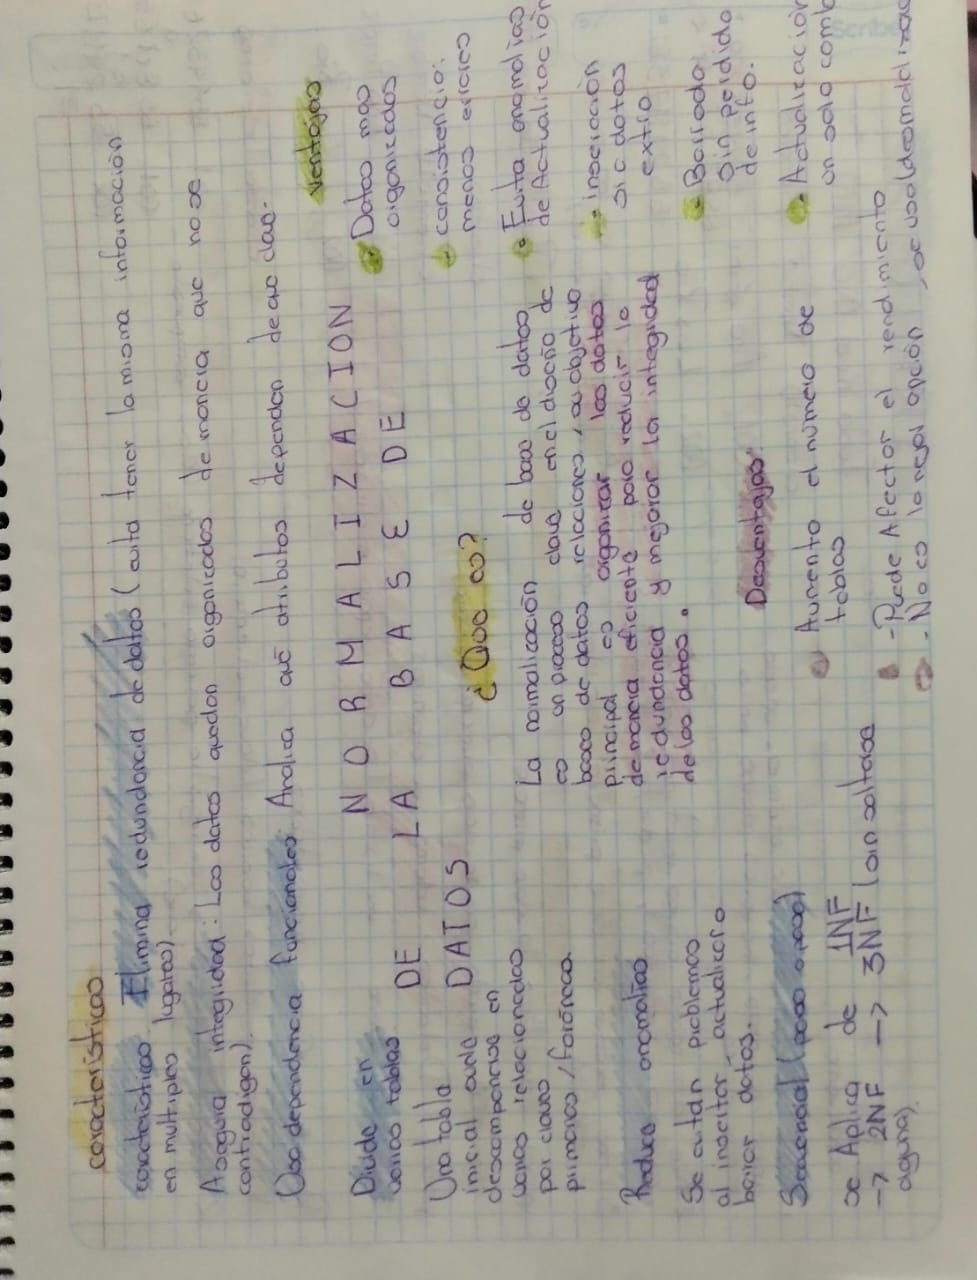 Características
características Elimina redundancia de datos (evita tener la misma información
en multiples lugares)
Asegura integridad: Los datos quedan organizados de manera que no se
contradigan).
Usa dependencia funcionales: Analiza qué atributos dependen de que clav-
NORMALIZACION
DE LA BASE DE
DATOS
Divide en
varias tablas
Una tabla
inicial suele
descomponerse en
varias relacionadas
por claves
primarias/foráneas.
Reduce anomalías
Se evitan problemas
al insertar, actualizar o
borrar datos.
Secuencial (paso a paso)
se Aplica de 1NF
-> 2NF -> 3NF (sin saltarse
alguna)
¿Que es?
La normalización de base de datos
es un proceso clave en el diseño de
bases de datos relaciones, su objetivo
principal es organizar los datos
de manera eficiente para reducir la
redundancia y mejorar la integridad
de los datos.
Desventajas
Aumento el numero de
tablas
- Puede Afectar el rendimiento
- No es la mejor opción, se usa
ventajas
Datos mas
organizados
consistencia:
menos errores
Evita anomalias
de Actualización
Inserción
sic datos
extra
Borrado
sin perdida
de info.
Actualización
un solo